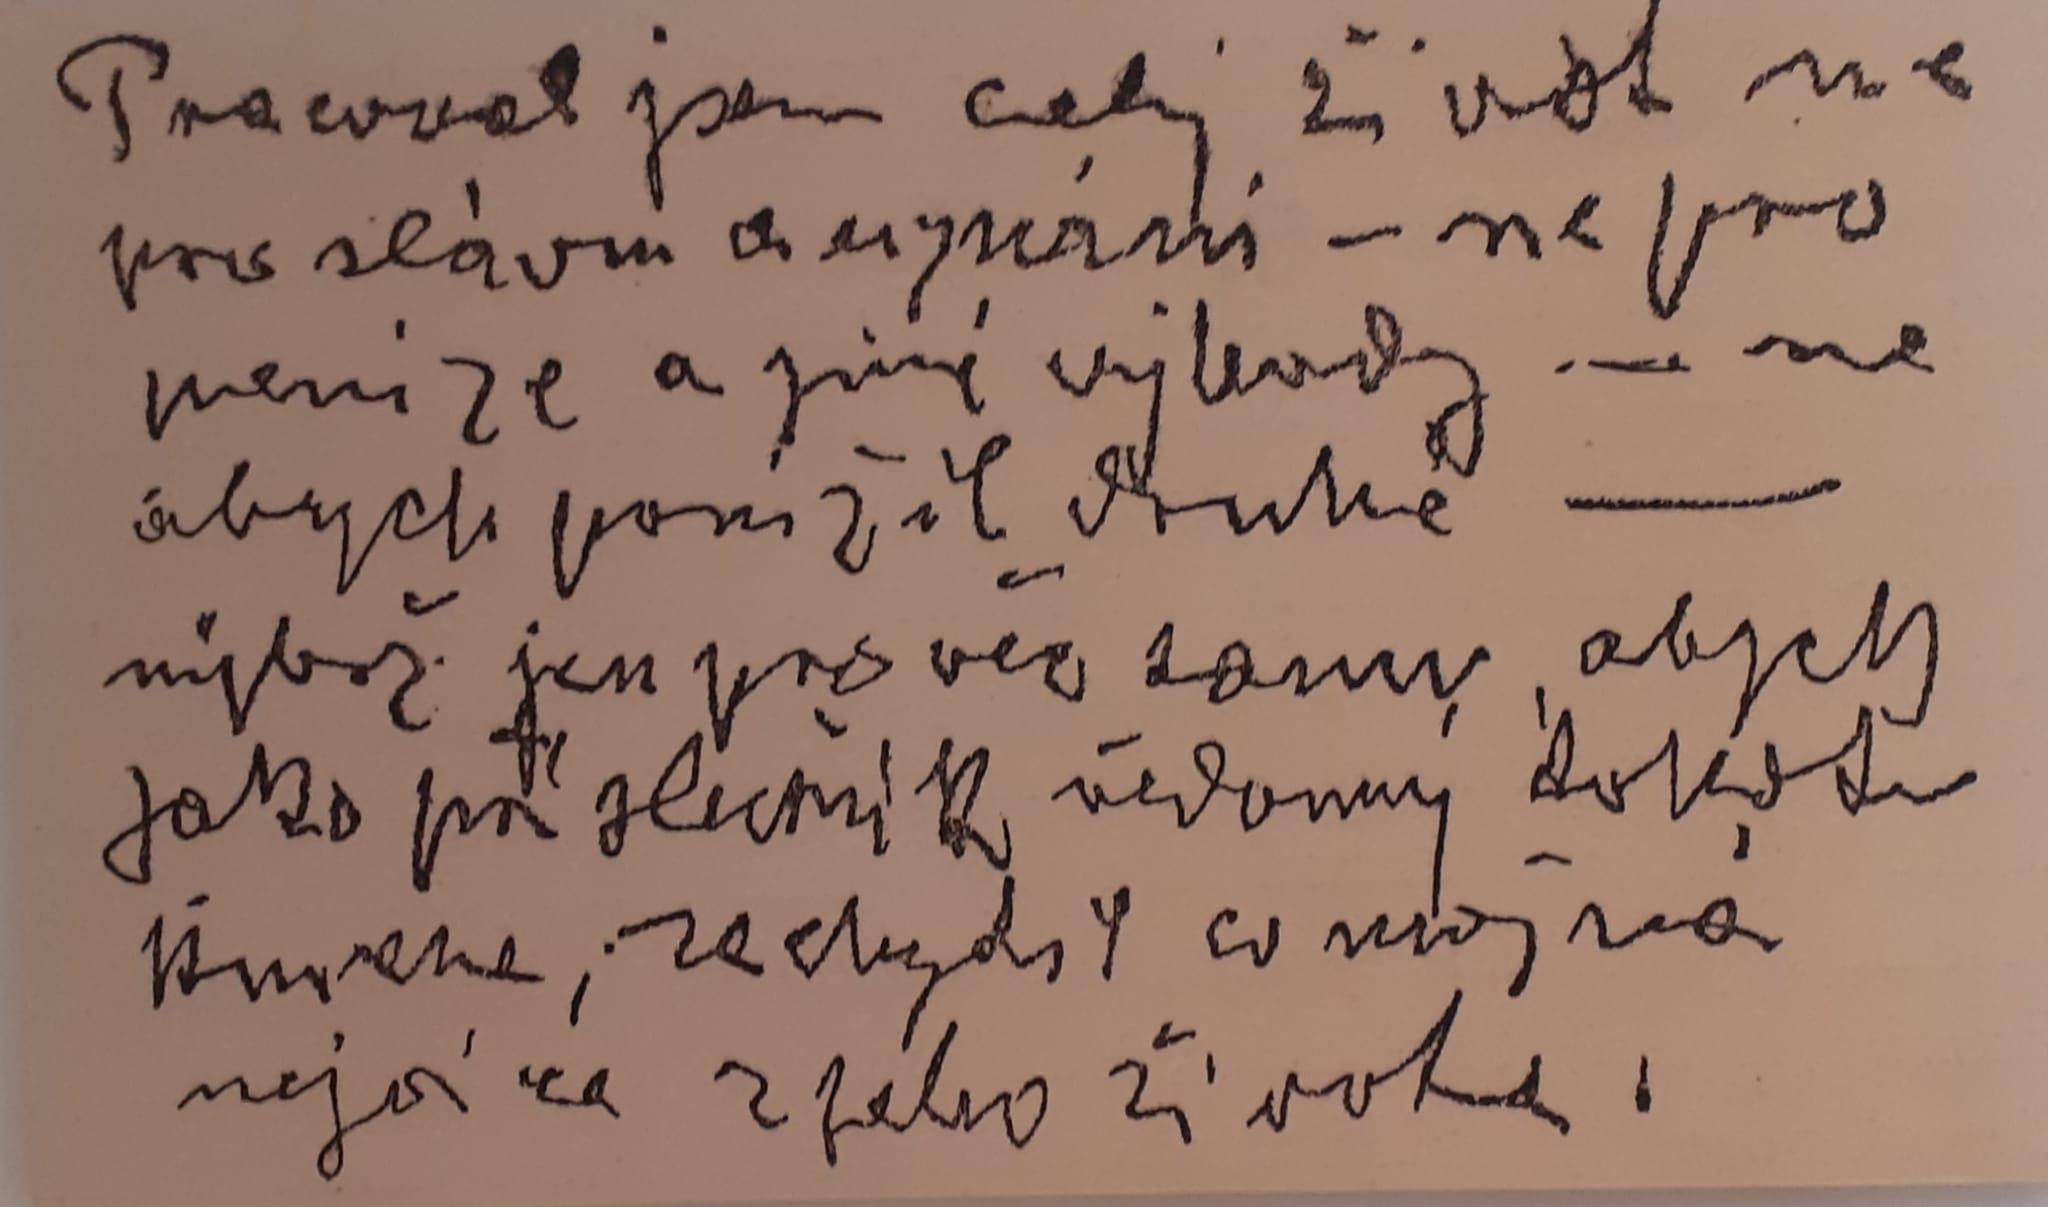 Pracoval jsem celý život ne
pro slávu a uznání – ne pro
peníze a jiné výhody – ne
abych ponížil druhé —
nýbrž jen pro věc samu, abych
jako příslušník vědomý tohoto
kmene, zachytil co možná
nejvíce z jeho života.